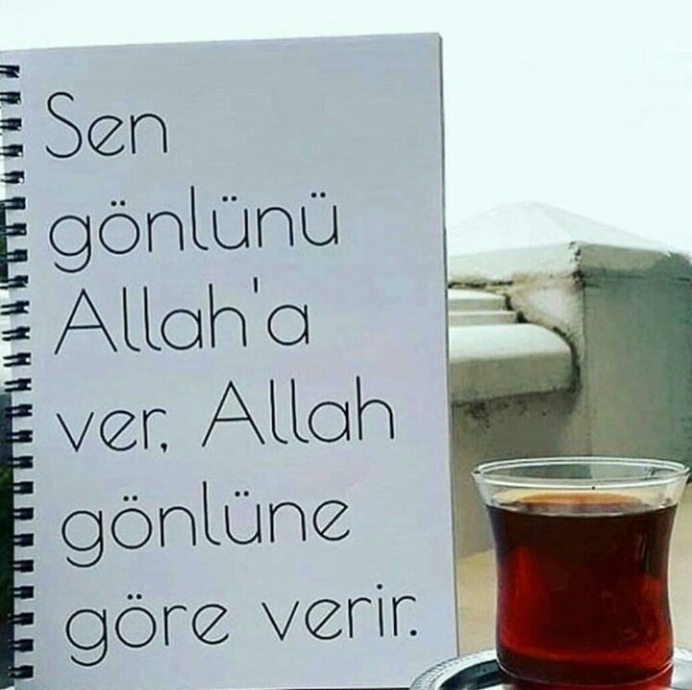 Sen
gönlünü
Allah'a
ver, Allah
gönlüne
göre verir.